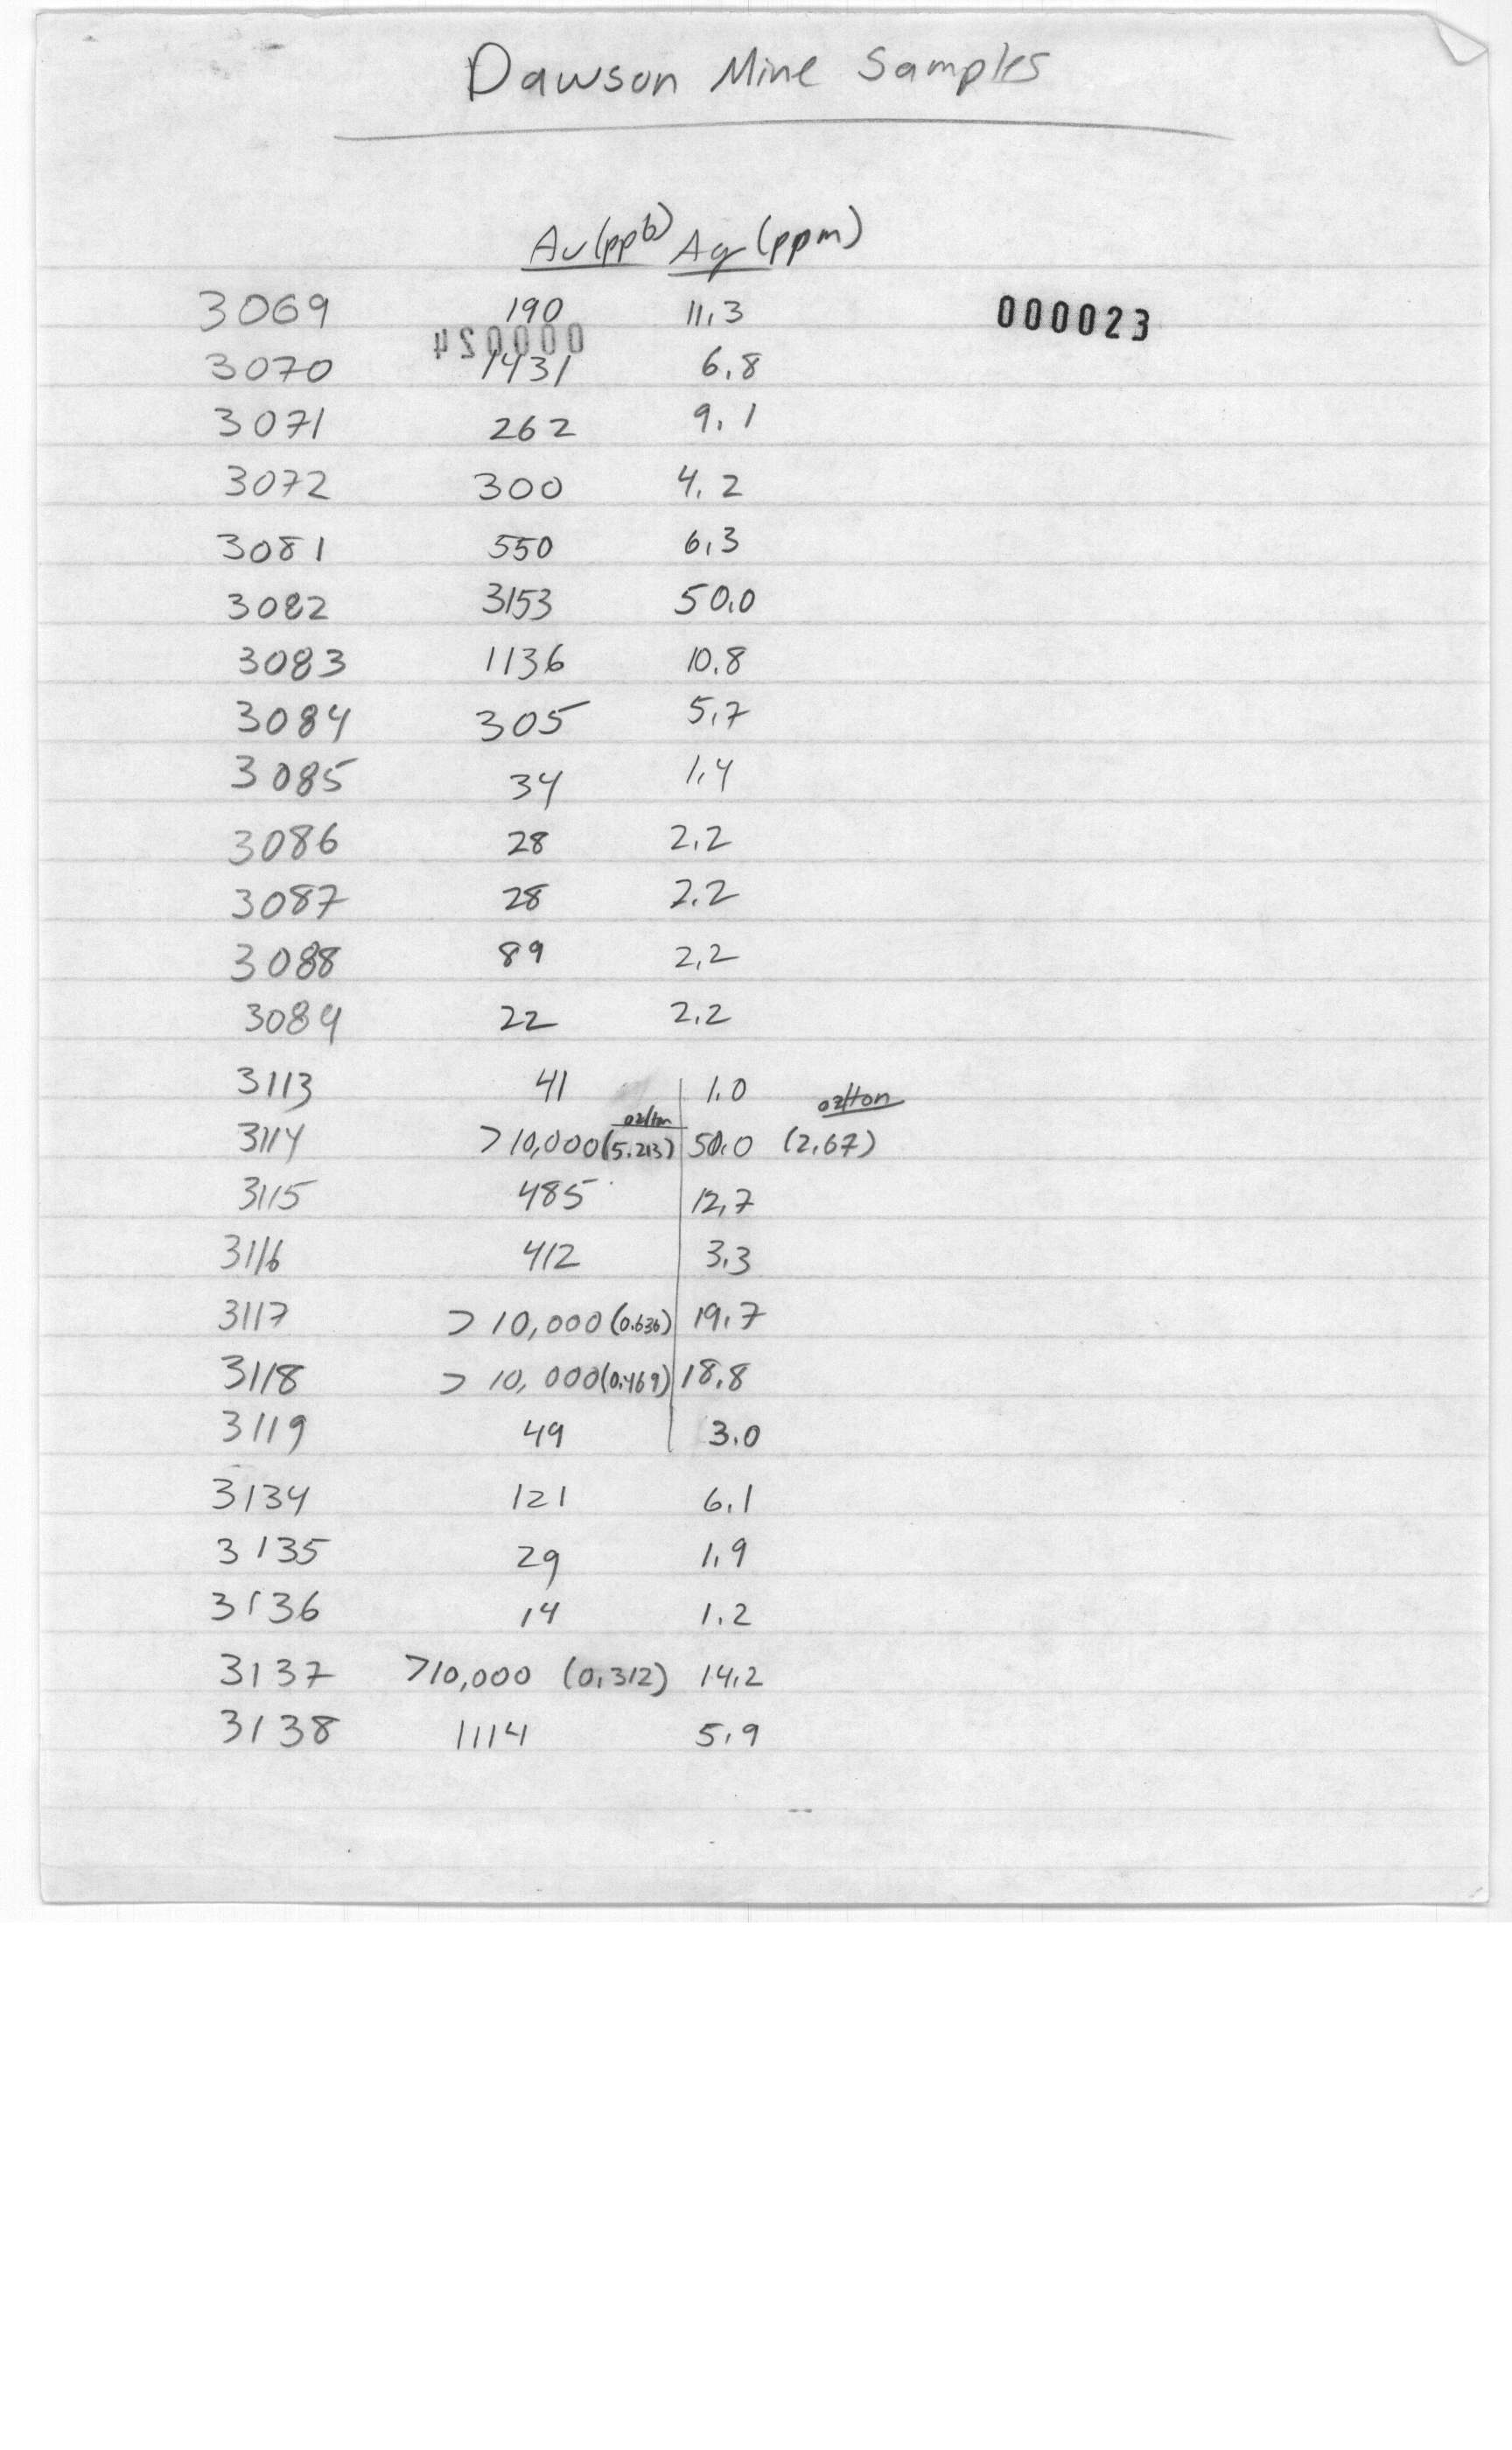 Dawson Mine Samples
Au(ppb) Ag(ppm)
3069 190 11.3 000023
000024
3070 1431 6.8
3071 262 9.1
3072 300 4.2
3081 550 6.3
3082 3153 50.0
3083 1136 10.8
3084 305 5.7
3085 34 1.4
3086 28 2.2
3087 28 2.2
3088 89 2.2
3089 22 2.2
3113 41 1.0
oz/ton oz/ton
3114 >10,000(5.213) 50.0 (2.67)
3115 485 12.7
3116 412 3.3
3117 >10,000(0.636) 19.7
3118 >10,000(0.469) 18.8
3119 49 3.0
3134 121 6.1
3135 29 1.9
3136 14 1.2
3137 >10,000 (0.312) 14.2
3138 1114 5.9